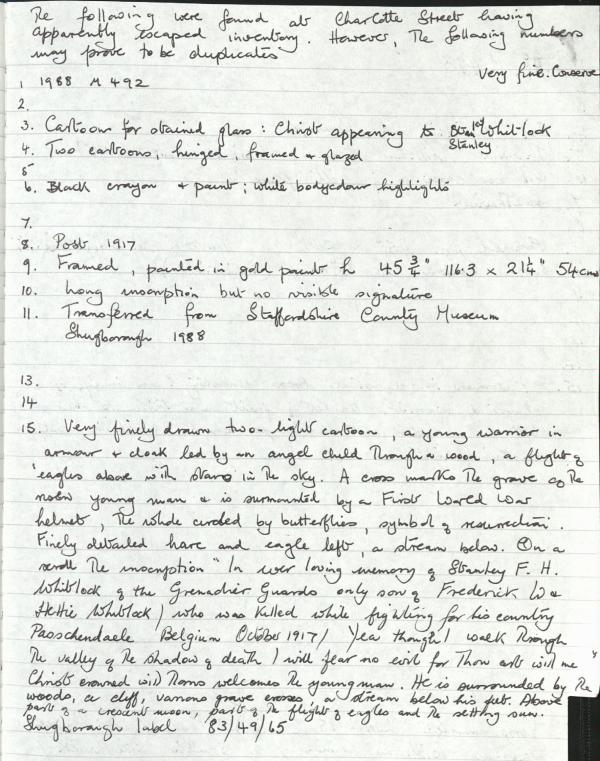 The following were found at Charlotte Street having
apparently escaped inventory. However, The following numbers
may prove to be duplicates
Very fine. Conserve
1 1988 M 492
2.
3. Cartoon for stained glass: Christ appearing to Stan Whitlock
Stanley
4. Two cartoons, hinged, framed & glazed
5
6. Black crayon & paint; white bodycolour highlights
7.
8. Post 1917
9. Framed, painted in gold paint h 45 3/4" 116.3 x 21 1/4" 54cms
10. Long inscription but no visible signature
11. Transferred from Staffordshire County Museum
Shugborough 1988
13.
14
15. Very finely drawn two-light cartoon, a young warrior in
armour & cloak led by an angel child Through a wood, a flight of
eagles above with stars in The sky. A cross marks The grave of The
young man & is surmounted by a First World War
helmet, The whole circled by butterflies, symbol of resurrection.
Finely detailed hare and eagle left, a stream below. On a
scroll The inscription "In ever loving memory of Stanley F. H.
Whitlock of the Grenadier Guards only son of Frederick W &
Hettie Whitlock / who was killed while fighting for his country
Passchendaele Belgium October 1917 / Yea though I walk Through
The valley of The shadow of death I will fear no evil for Thou art with me"
Christ crowned with Thorns welcomes The young man. He is surrounded by The
woods, a cliff, various grave crosses, a stream below his feet. Above
part of a crescent moon, part of The flight of eagles and The setting sun.
Shugborough label 83/49/65